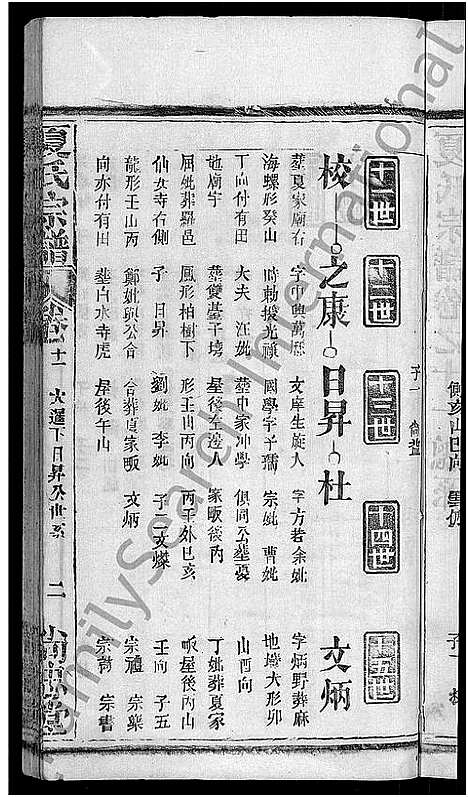 十一世
十二世
十三世
十四世
十五世
校
之康
日昇
杜
文炳
葬夏家廟右
海螺形癸山
丁向付有田
地廟宇
屈妣葬羅邑
仙女寺右側
龍形壬山丙
向亦付有田
字中興萬歴
時勅授光祿
大夫 江妣
葬雙臺干塝
鳳形柏樹下
子 日昇
鄭妣與公合
葬白水寺虎
文庠生旋人
國學字子孺
葬中家冲學
屋後左邊人
形壬山丙向
劉妣 李妣
合葬夏家畈
屋後午山
字方若余妣
宗妣 曹妣
俱同公葬
家畈後丙
丙壬外巳亥
子二文燦
文炳
字炳野葬麻
地塆大形卯
山酉向
丁妣葬夏家
畈屋後丙山
壬向 子五
宗禮 宗樂
宗 宗書
夏氏宗譜
卷之十一 次遷下日昇公世系
二
尚忠堂
FamilySearch International